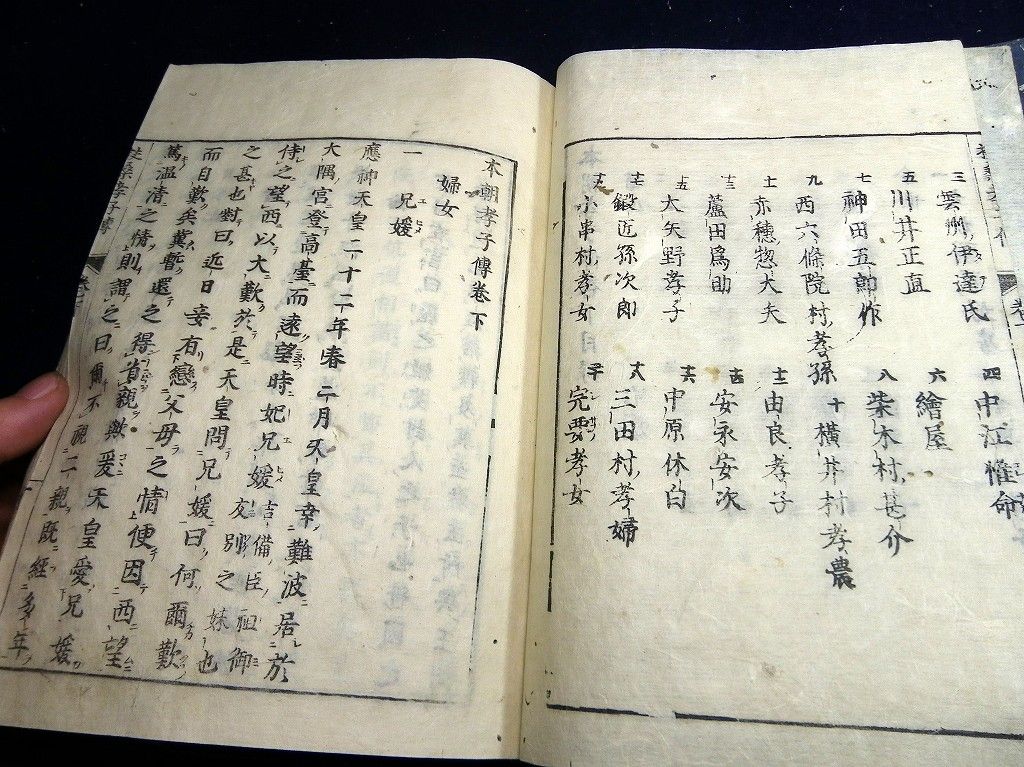 三 雲州伊達氏
四 中江惟命
五 川井正直
六 繪屋
七 神田五郎作
八 柴木村甚介
九 西六條院村孝孫
十 横井村孝農
十一 赤穂惣大夫
十二 由良孝子
十三 蘆田爲助
十四 安永安次
十五 大矢野孝子
十六 中原休白
十七 鍛匠孫次郎
十八 三田村孝婦
十九 小串村孝女
二十 完栗孝女
本朝孝子傳卷下
婦女
一 兄媛
應神天皇二十二年春二月天皇幸難波居於
大隅宮登高臺而遠望時妃兄媛吉備臣祖御友別之妹也
侍之望西以大歎於是天皇問兄媛曰何爾歎
之甚也對曰近日妾有戀父母之情便因西望
而自歎矣冀暫還之得省親歟爰天皇愛兄媛
篤温凊之情則謂之曰爾不視二親既經多年